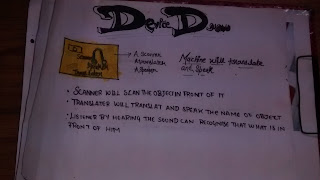 Device D
A Scanner
A translator
A Speaker
Machine will translate
and, Speak
• SCANNER WILL SCAN THE OBJECT IN FRONT OF IT
• TRANSLATER WILL TRANSLAT AND SPEAK THE NAME OF OBJECT
• LISTENER BY HEARING THE SOUND CAN RECOGNISE THAT WHAT IS IN
FRONT OF HIM